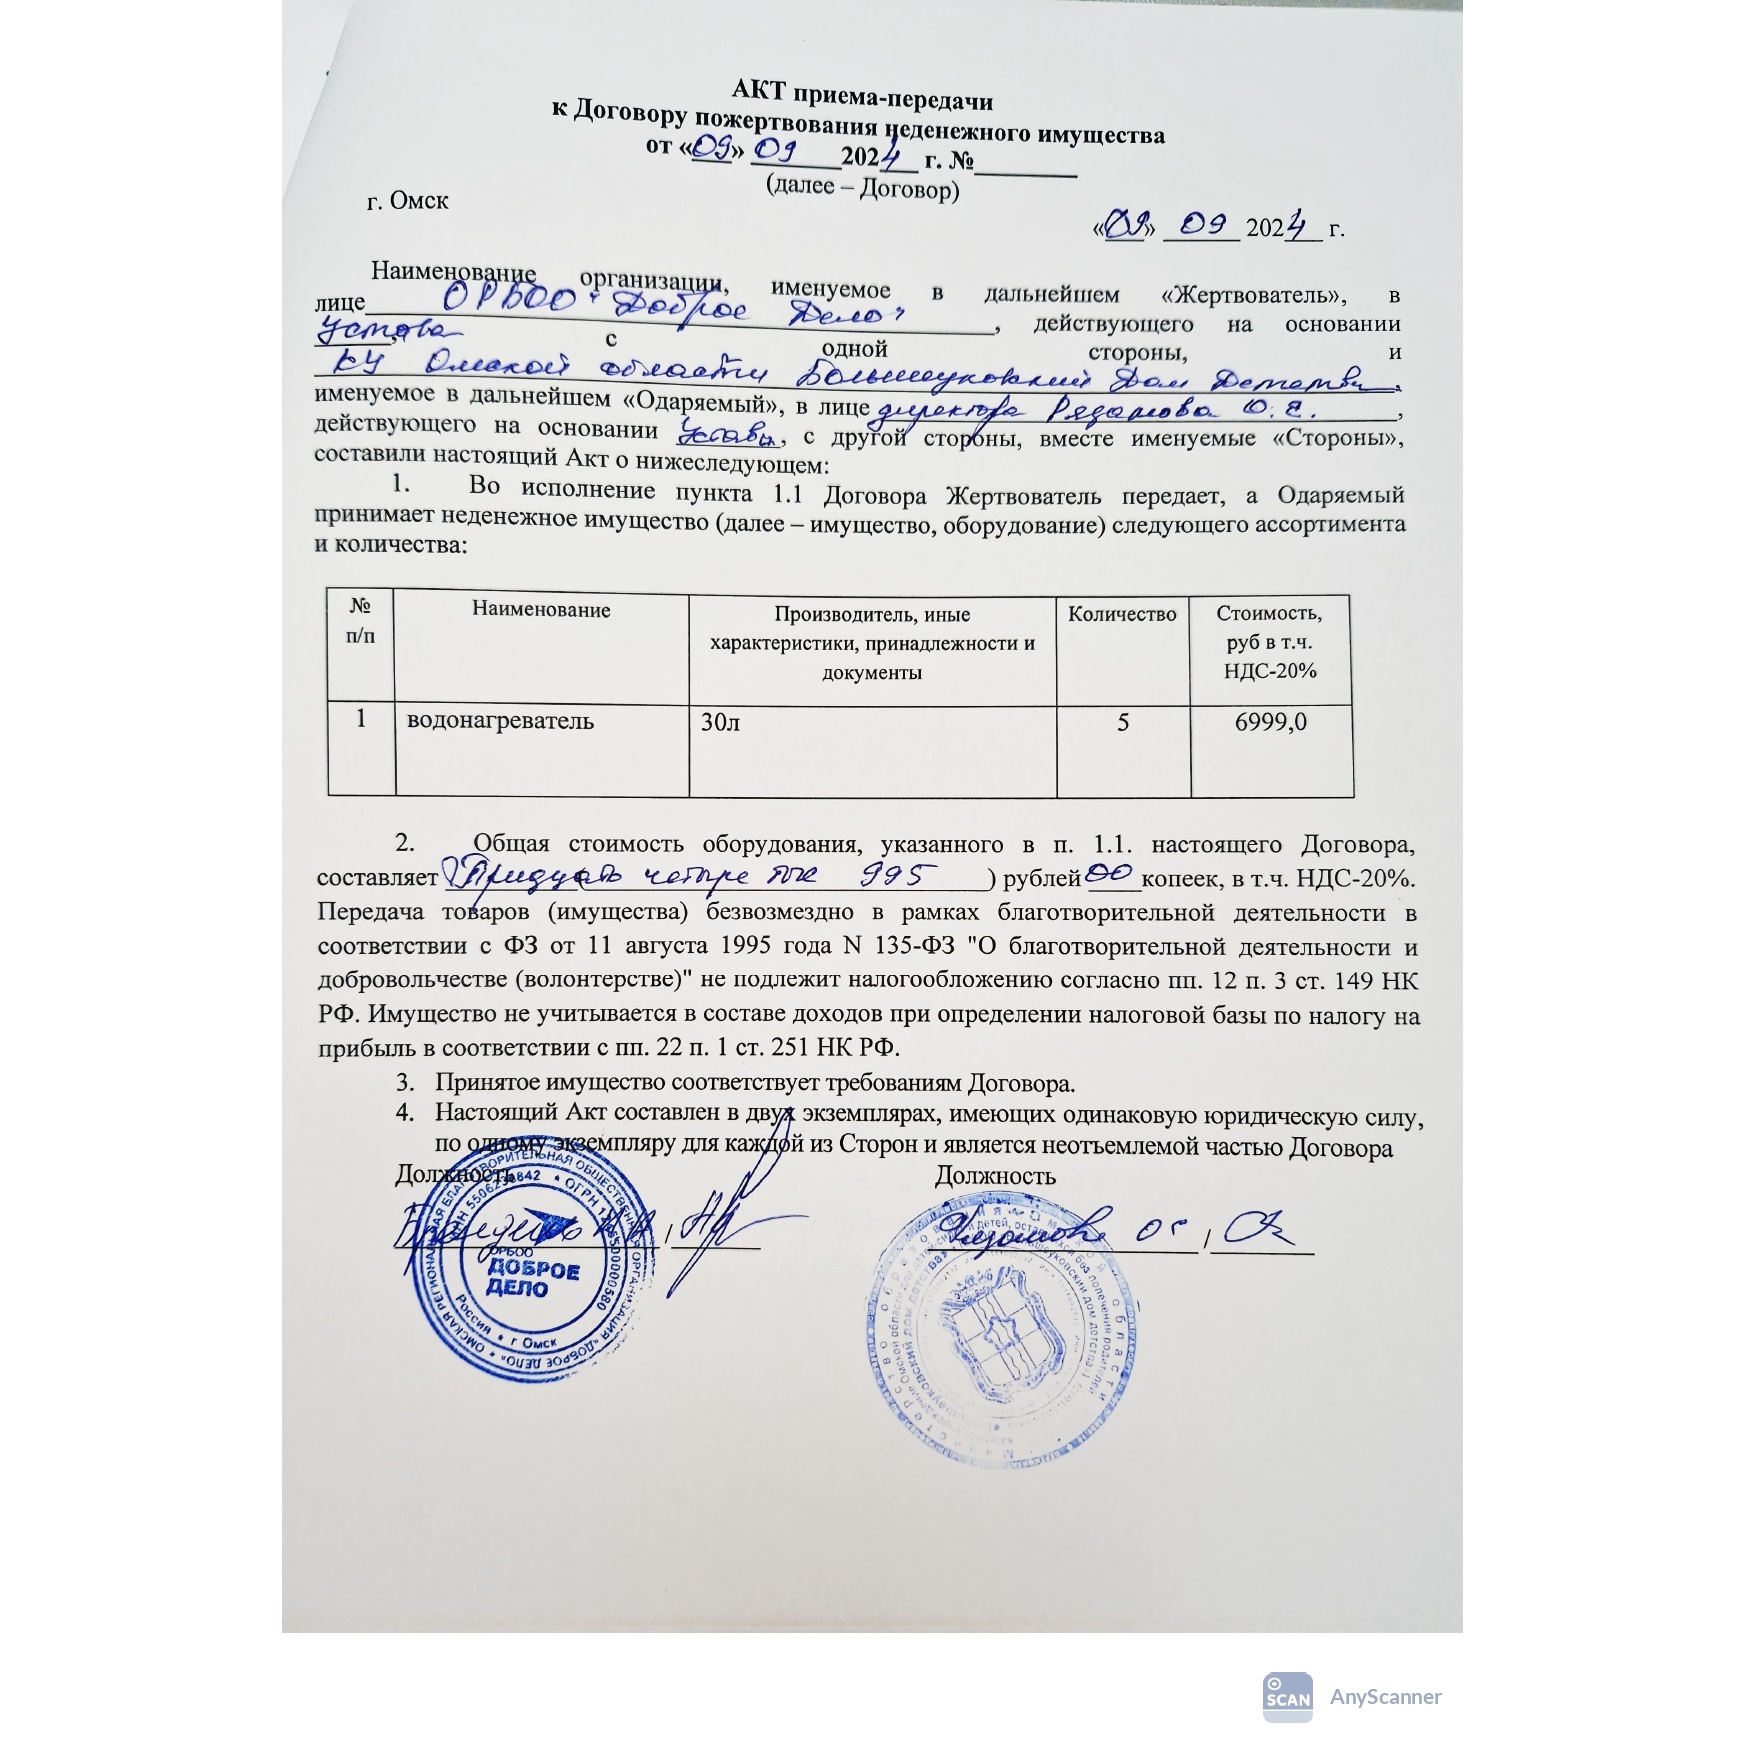 АКТ приема-передачи
к Договору пожертвования неденежного имущества
от «09» 09 2024 г. №
(далее – Договор)
г. Омск
«09» 09 2024 г.
Наименование организации, именуемое в дальнейшем «Жертвователь», в
лице ОРБОО "Доброе Дело", действующего на основании
Устава, с одной стороны, и
КУ Омской области Большеуковский Дом Детства,
именуемое в дальнейшем «Одаряемый», в лице директора О.С.,
действующего на основании Устава, с другой стороны, вместе именуемые «Стороны»,
составили настоящий Акт о нижеследующем:
1. Во исполнение пункта 1.1 Договора Жертвователь передает, а Одаряемый
принимает неденежное имущество (далее – имущество, оборудование) следующего ассортимента
и количества:
№ п/п Наименование Производитель, иные характеристики, принадлежности и документы Количество Стоимость, руб в т.ч. НДС-20%
1 водонагреватель 30л 5 6999,0
2. Общая стоимость оборудования, указанного в п. 1.1. настоящего Договора,
составляет (Тридцать четыре тыс 995) рублей 00 копеек, в т.ч. НДС-20%.
Передача товаров (имущества) безвозмездно в рамках благотворительной деятельности в
соответствии с ФЗ от 11 августа 1995 года N 135-ФЗ "О благотворительной деятельности и
добровольчестве (волонтерстве)" не подлежит налогообложению согласно пп. 12 п. 3 ст. 149 НК
РФ. Имущество не учитывается в составе доходов при определении налоговой базы по налогу на
прибыль в соответствии с пп. 22 п. 1 ст. 251 НК РФ.
3. Принятое имущество соответствует требованиям Договора.
4. Настоящий Акт составлен в двух экземплярах, имеющих одинаковую юридическую силу,
по одному экземпляру для каждой из Сторон и является неотъемлемой частью Договора
Должность
Должность
ОМСКАЯ РЕГИОНАЛЬНАЯ БЛАГОТВОРИТЕЛЬНАЯ ОБЩЕСТВЕННАЯ ОРГАНИЗАЦИЯ «ДОБРОЕ ДЕЛО»
ОРБОО
ДОБРОЕ
ДЕЛО
Россия * г Омск
Министерство образования Омской области
SCAN AnyScanner